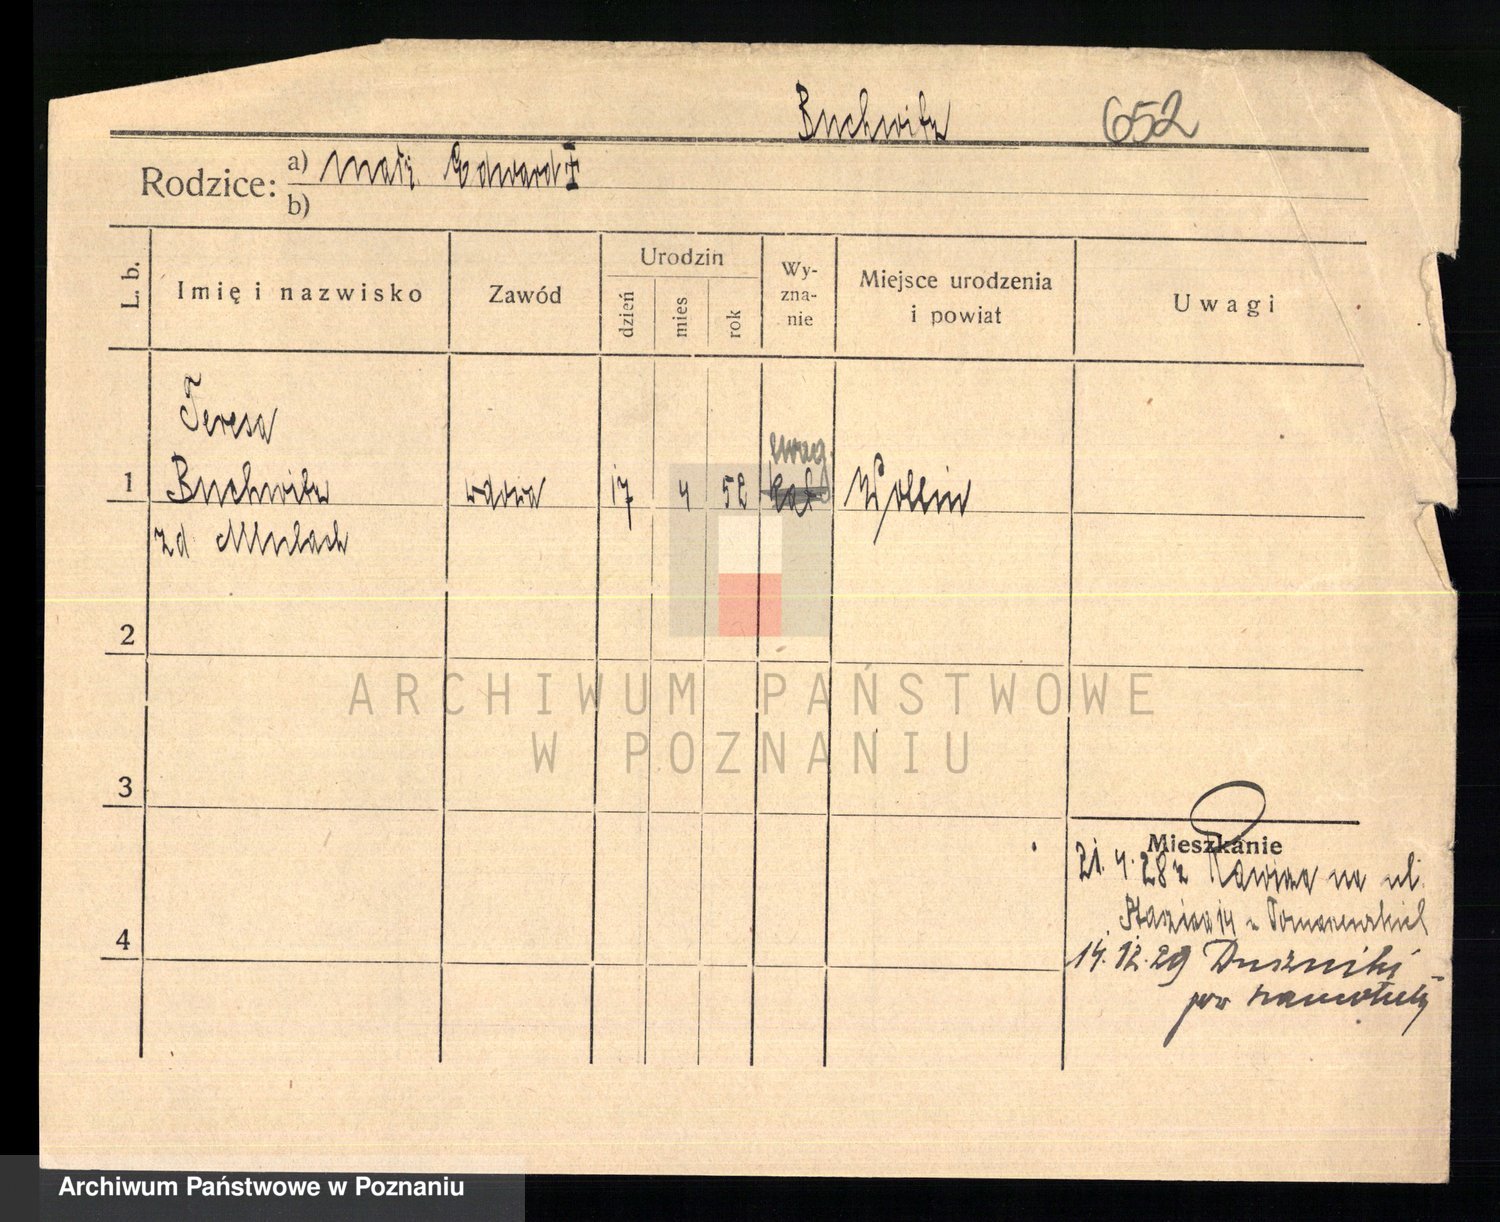 Buchwitz 652
Rodzice: a) Małż. Edward †
b)
L. b. Imię i nazwisko Zawód Urodzin dzień mies rok Wy-zna-nie Miejsce urodzenia i powiat Uwagi
Teresa
1 Buchwitz wdowa 17 4 52 ewag. kat Wollin
zd
2
3
4
Mieszkanie
21. 4. 28 z Rawicza na ul.
Staszica 14
14. 12. 29 Duszniki -
pow Szamotuły
ARCHIWUM PAŃSTWOWE
W POZNANIU
Archiwum Państwowe w Poznaniu